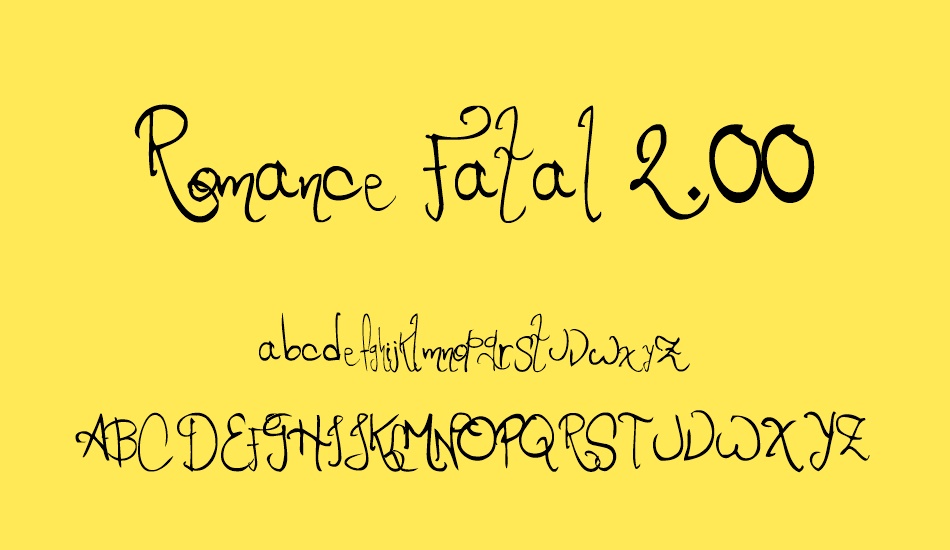 Romance Fatal 2.00
abcdefghijklmnopqrstuvwxyz
ABCDEFGHIJKLMNOPQRSTUVWXYZ